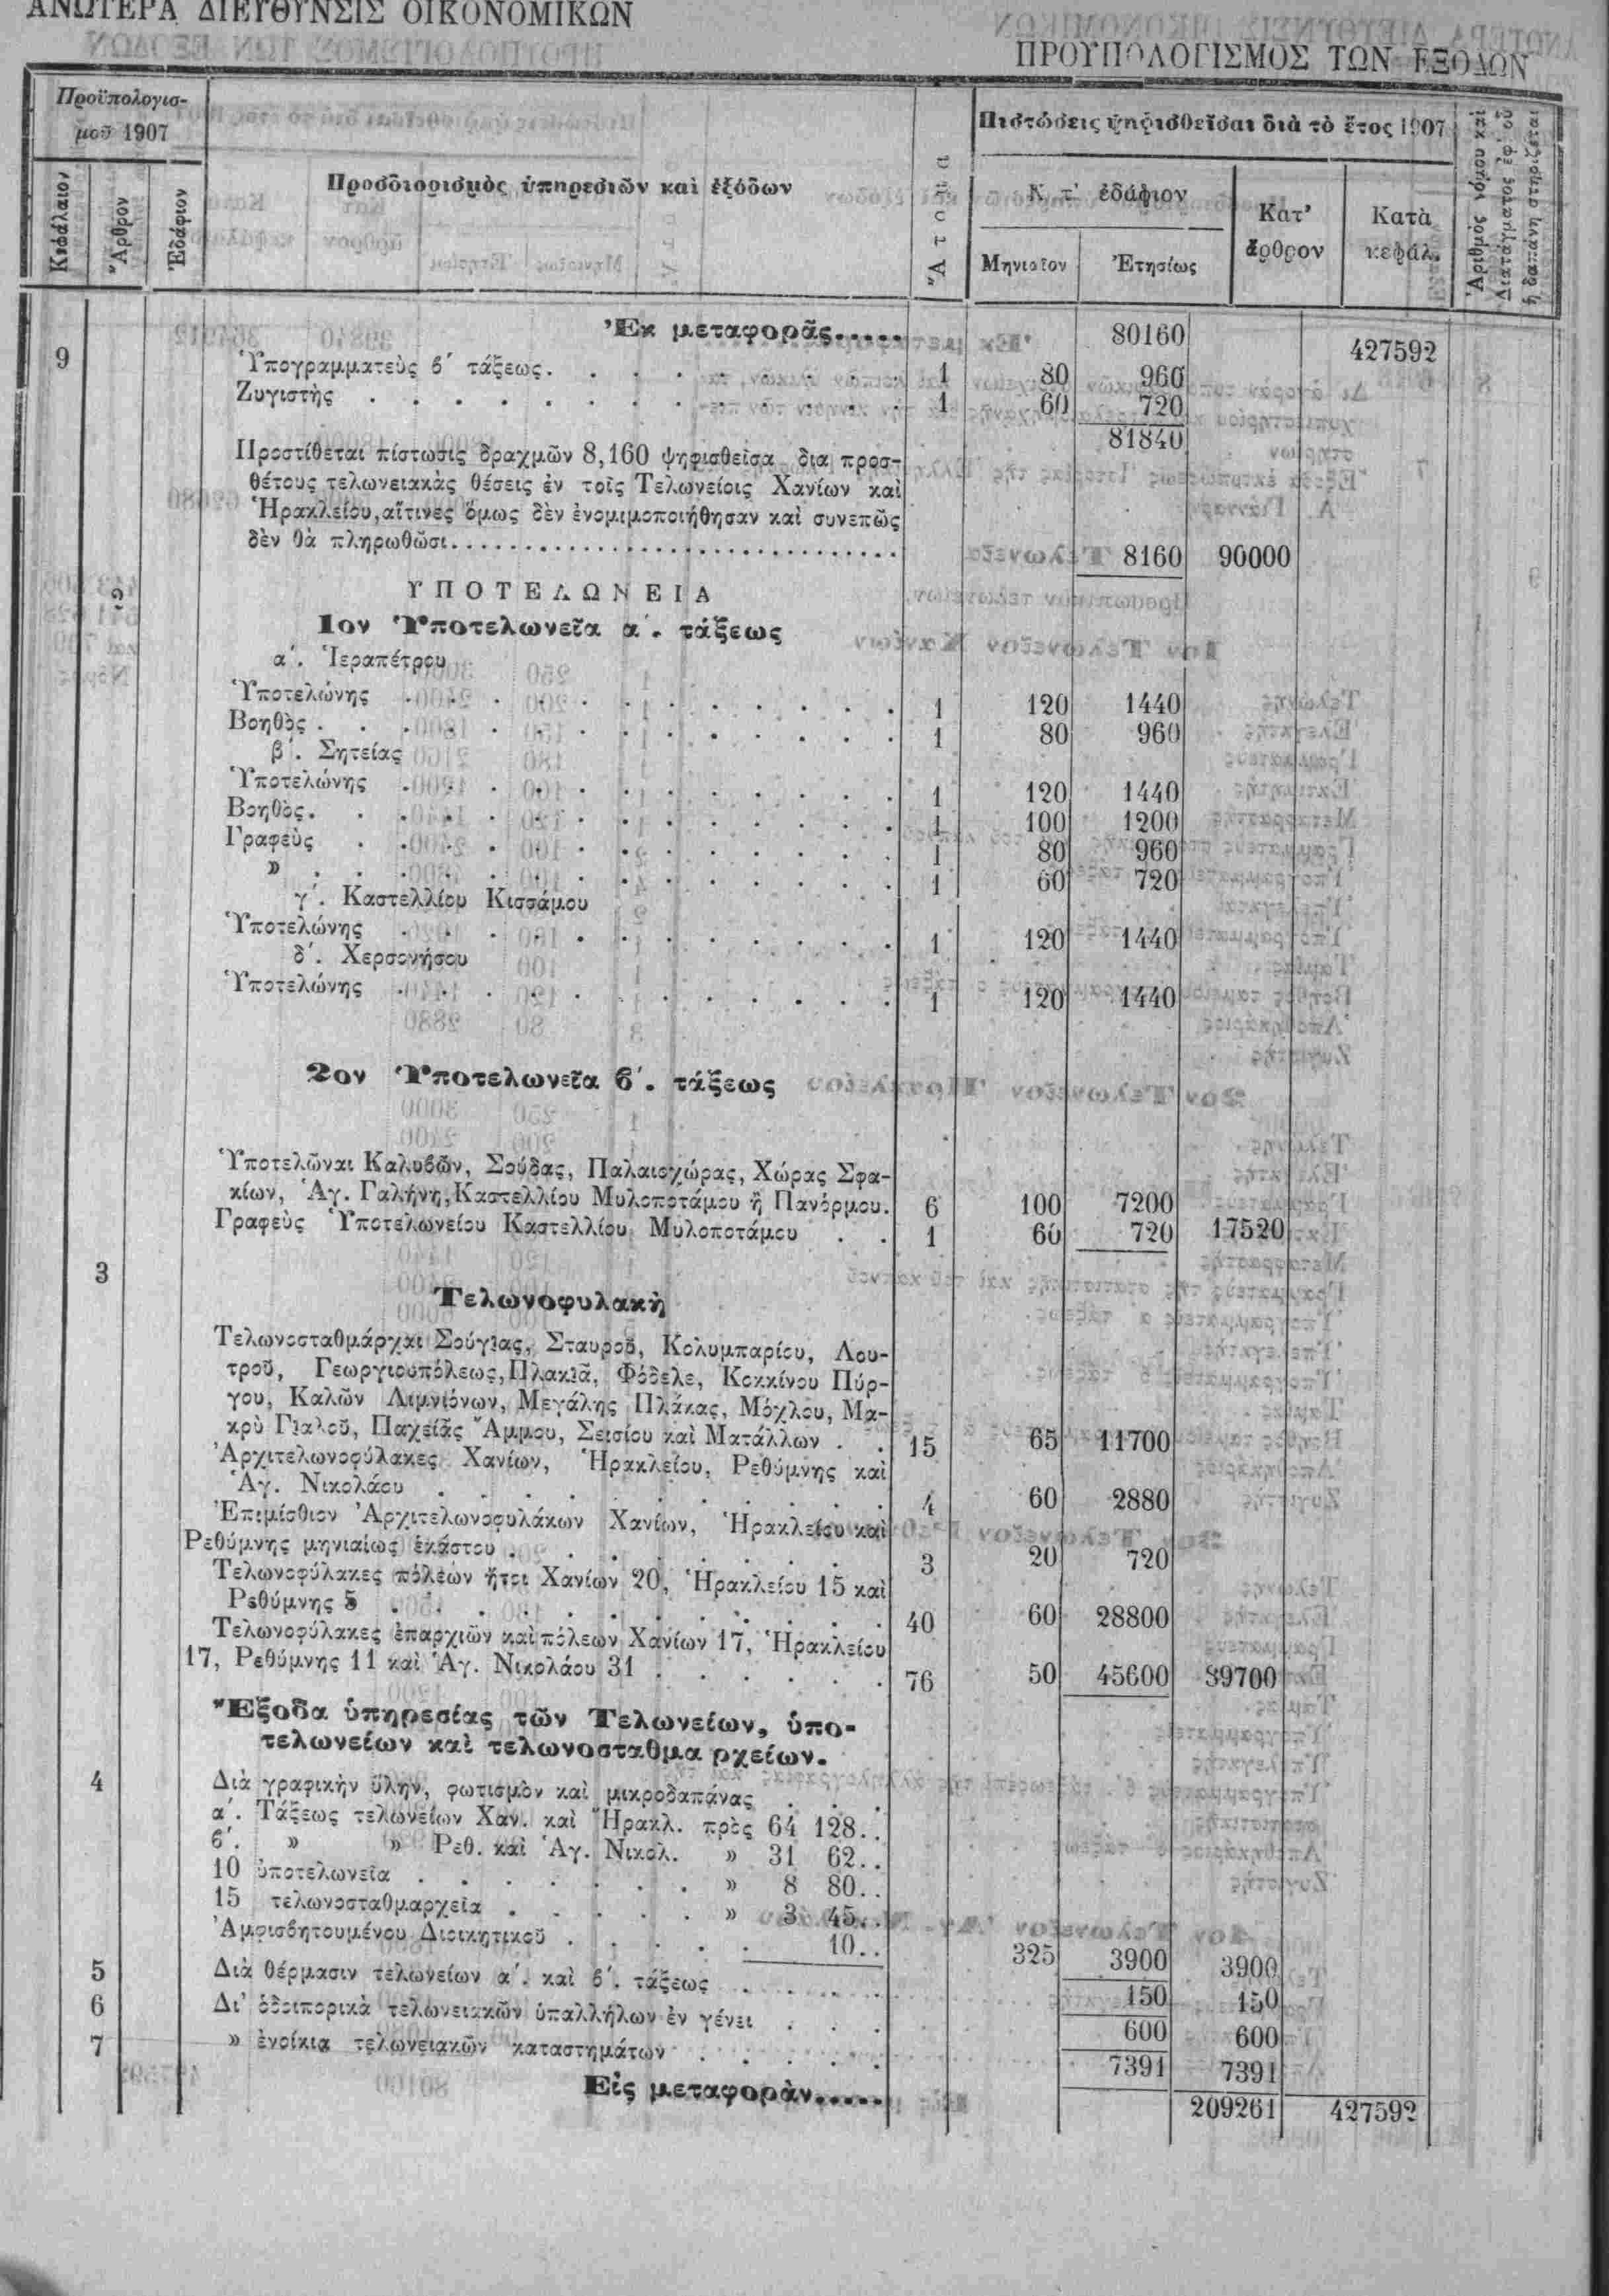 ΑΝΩΤΕΡΑ ΔΙΕΥΘΥΝΣΙΣ ΟΙΚΟΝΟΜΙΚΩΝ
ΠΡΟΥΠΟΛΟΓΙΣΜΟΣ ΤΩΝ ΕΞΟΔΩΝ
Προϋπολογισ-
μοῦ 1907
Κεφάλαιον
Ἄρθρον
Ἐδάφιον
Προσδιορισμὸς ὑπηρεσιῶν καὶ ἐξόδων
Ἄτομα
Πιστώσεις ψηφισθεῖσαι διὰ τὸ ἔτος 1907
Κ τ' ἐδάφιον
Μηνιαῖον
Ἐτησίως
Κατ' ἄρθρον
Κατὰ κεφάλ.
Ἀριθμὸς νόμου καὶ
Διατάγματος ἐφ' οὗ
ἡ δαπάνη στηρίζεται
Ἐκ μεταφορᾶς..... 80160 427592
9
Ὑπογραμματεὺς β΄ τάξεως. 1 80 960
Ζυγιστὴς 1 60 720
81840
Προστίθεται πίστωσις δραχμῶν 8,160 ψηφισθεῖσα δια προσ-
θέτους τελωνειακὰς θέσεις ἐν τοῖς Τελωνείοις Χανίων καὶ
Ἡρακλείου, αἵτινες ὅμως δὲν ἐνομιμοποιήθησαν καὶ συνεπῶς
δὲν θὰ πληρωθῶσι. 8160 90000
2 ΥΠΟΤΕΛΩΝΕΙΑ
1ον Ὑποτελωνεῖα α΄. τάξεως
α΄. Ἱεραπέτρου
Ὑποτελώνης 1 120 1440
Βοηθὸς. 1 80 960
β΄. Σητείας
Ὑποτελώνης 1 120 1440
Βοηθὸς. 1 100 1200
Γραφεὺς 1 80 960
» 1 60 720
γ΄. Καστελλίου Κισσάμου
Ὑποτελώνης 1 120 1440
δ΄. Χερσονήσου
Ὑποτελώνης 1 120 1440
2ον Ὑποτελωνεῖα β΄. τάξεως
Ὑποτελῶναι Καλυβῶν, Σούδας, Παλαιοχώρας, Χώρας Σφα-
κίων, Ἁγ. Γαλήνη, Καστελλίου Μυλοποτάμου ἢ Πανόρμου. 6 100 7200
Γραφεὺς Ὑποτελωνείου Καστελλίου Μυλοποτάμου 1 60 720 17520
3
Τελωνοφυλακὴ
Τελωνοσταθμάρχαι Σούγιας, Σταυροῦ, Κολυμπαρίου, Λου-
τροῦ, Γεωργιουπόλεως, Πλακιᾶ, Φόδελε, Κοκκίνου Πύρ-
γου, Καλῶν Λιμνιόνων, Μεγάλης Πλάκας, Μόχλου, Μα-
κρὺ Γιαλοῦ, Παχείᾶς Ἄμμου, Σεισίου καὶ Ματάλλων 15 65 11700
Ἀρχιτελωνοφύλακες Χανίων, Ἡρακλείου, Ρεθύμνης καὶ
Ἁγ. Νικολάου 4 60 2880
Ἐπιμίσθιον Ἀρχιτελωνοφυλάκων Χανίων, Ἡρακλείου καὶ
Ρεθύμνης μηνιαίως ἑκάστου 3 20 720
Τελωνοφύλακες πόλεων ἤτοι Χανίων 20, Ἡρακλείου 15 καὶ
Ρεθύμνης 5 40 60 28800
Τελωνοφύλακες ἐπαρχιῶν καὶ πόλεων Χανίων 17, Ἡρακλείου
17, Ρεθύμνης 11 καὶ Ἁγ. Νικολάου 31 76 50 45600 89700
Ἔξοδα ὑπηρεσίας τῶν Τελωνείων, ὑπο-
τελωνείων καὶ τελωνοσταθμα ρχείων.
4 Διὰ γραφικὴν ὕλην, φωτισμὸν καὶ μικροδαπάνας
α΄. Τάξεως τελωνείων Χαν. καὶ Ἡρακλ. πρὸς 64 128..
β΄. » » Ρεθ. καὶ Ἁγ. Νικολ. » 31 62..
10 ὑποτελωνεῖα » 8 80..
15 τελωνοσταθμαρχεῖα » 3 45..
Ἀμφισβητουμένου Διοικητικοῦ 10.. 325 3900 3900
5 Διὰ θέρμασιν τελωνείων α΄. καὶ β΄. τάξεως 150 150
6 Δι' ὁδοιπορικὰ τελωνειακῶν ὑπαλλήλων ἐν γένει 600 600
7 » ἐνοίκια τελωνειακῶν καταστημάτων 7391 7391
Εἰς μεταφορὰν..... 209261 427592